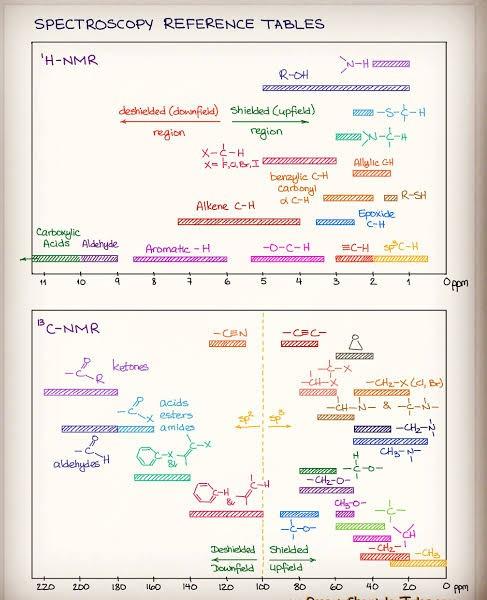 SPECTROSCOPY REFERENCE TABLES
¹H-NMR
N-H
R-OH
deshielded (downfield)
region
Shielded (upfield)
region
-S-C-H
N-C-H
X-C-H
X= F, Cl, Br, I
Allylic CH
benzylic C-H
Carbonyl
α C-H
R-SH
Alkene C-H
Epoxide
C-H
Carboxylic
Acids
Aldehyde
Aromatic -H
-O-C-H
≡C-H
sp³C-H
11 10 9 8 7 6 5 4 3 2 1 0 ppm
¹³C-NMR
-C≡N
-C≡C-
O
C-X
-CH-X
ketones
-C R
O
-CH₂-X (Cl, Br)
-CH-N- & -C-N-
acids
esters
amides
-C X
O
sp²
sp³
-CH₂-N
CH₃-N-
aldehydes
-C H
O
-X & X
H
-C-O-
-CH₂-O-
-H & C-H
CH₃-O-
-C-O-
-C-
CH
-CH₂-
-CH₃
Deshielded
Downfield
Shielded
upfield
220 200 180 160 140 120 100 80 60 40 20 0 ppm